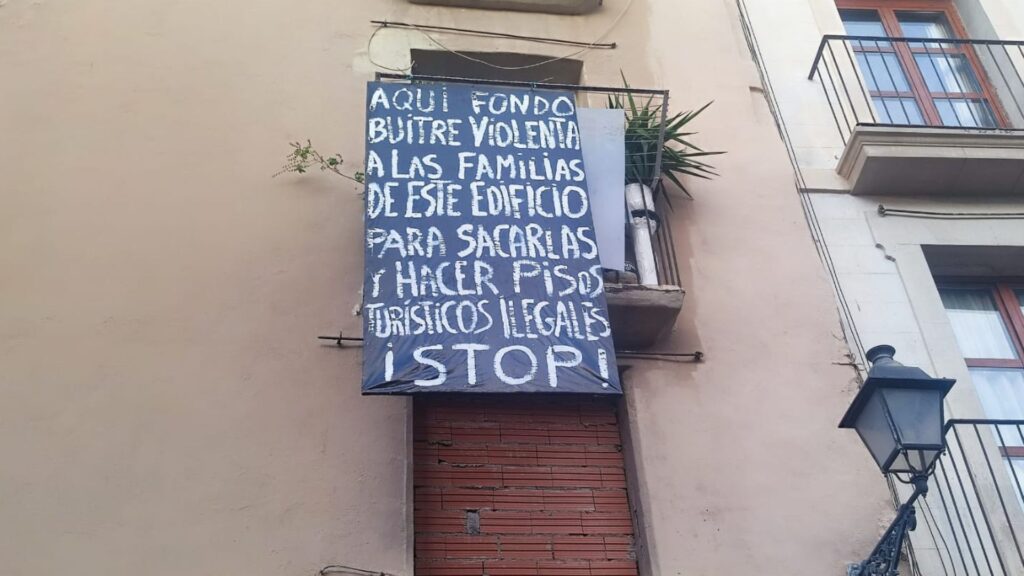 AQUÍ FONDO
BUITRE VIOLENTA
A LAS FAMILIAS
DE ESTE EDIFICIO
PARA SACARLAS
Y HACER PISOS
TURÍSTICOS ILEGALES
¡STOP!